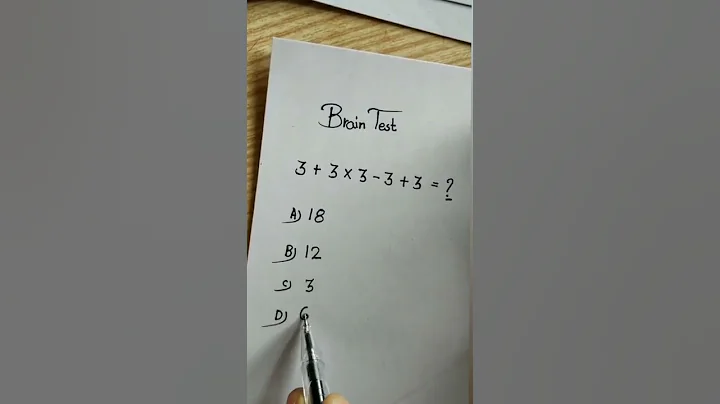 Brain Test
3 + 3 x 3 - 3 + 3 = ?
A) 18
B) 12
C) 3
D) 6